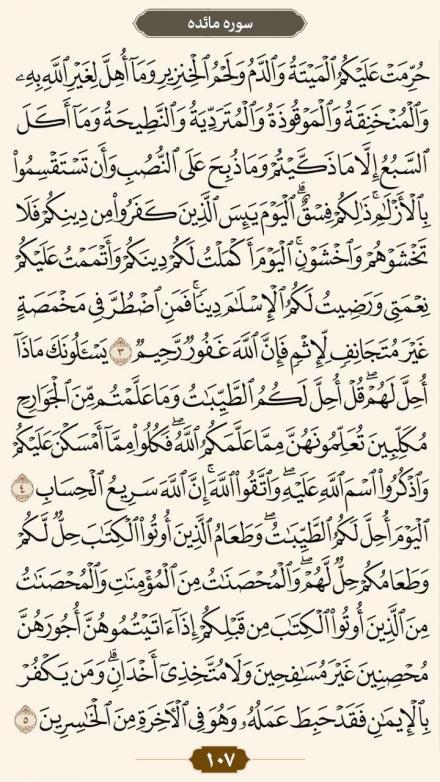 سوره مائده
حُرِّمَتْ عَلَيْكُمُ ٱلْمَيْتَةُ وَٱلدَّمُ وَلَحْمُ ٱلْخِنزِيرِ وَمَآ أُهِلَّ لِغَيْرِ ٱللَّهِ بِهِۦ
وَٱلْمُنْخَنِقَةُ وَٱلْمَوْقُوذَةُ وَٱلْمُتَرَدِّيَةُ وَٱلنَّطِيحَةُ وَمَآ أَكَلَ
ٱلسَّبُعُ إِلَّا مَا ذَكَّيْتُمْ وَمَا ذُبِحَ عَلَى ٱلنُّصُبِ وَأَن تَسْتَقْسِمُوا۟
بِٱلْأَزْلَٰمِ ۚ ذَٰلِكُمْ فِسْقٌ ۗ ٱلْيَوْمَ يَئِسَ ٱلَّذِينَ كَفَرُوا۟ مِن دِينِكُمْ فَلَا
تَخْشَوْهُمْ وَٱخْشَوْنِ ۚ ٱلْيَوْمَ أَكْمَلْتُ لَكُمْ دِينَكُمْ وَأَتْمَمْتُ عَلَيْكُمْ
نِعْمَتِى وَرَضِيتُ لَكُمُ ٱلْإِسْلَٰمَ دِينًا ۚ فَمَنِ ٱضْطُرَّ فِى مَخْمَصَةٍ
غَيْرَ مُتَجَانِفٍ لِّإِثْمٍ ۙ فَإِنَّ ٱللَّهَ غَفُورٌ رَّحِيمٌ ٣ يَسْـَٔلُونَكَ مَاذَآ
أُحِلَّ لَهُمْ ۖ قُلْ أُحِلَّ لَكُمُ ٱلطَّيِّبَٰتُ ۙ وَمَا عَلَّمْتُم مِّنَ ٱلْجَوَارِحِ
مُكَلِّبِينَ تُعَلِّمُونَهُنَّ مِمَّا عَلَّمَكُمُ ٱللَّهُ ۖ فَكُلُوا۟ مِمَّآ أَمْسَكْنَ عَلَيْكُمْ
وَٱذْكُرُوا۟ ٱسْمَ ٱللَّهِ عَلَيْهِ ۖ وَٱتَّقُوا۟ ٱللَّهَ ۚ إِنَّ ٱللَّهَ سَرِيعُ ٱلْحِسَابِ ٤
ٱلْيَوْمَ أُحِلَّ لَكُمُ ٱلطَّيِّبَٰتُ ۖ وَطَعَامُ ٱلَّذِينَ أُوتُوا۟ ٱلْكِتَٰبَ حِلٌّ لَّكُمْ
وَطَعَامُكُمْ حِلٌّ لَّهُمْ ۖ وَٱلْمُحْصَنَٰتُ مِنَ ٱلْمُؤْمِنَٰتِ وَٱلْمُحْصَنَٰتُ
مِنَ ٱلَّذِينَ أُوتُوا۟ ٱلْكِتَٰبَ مِن قَبْلِكُمْ إِذَآ ءَاتَيْتُمُوهُنَّ أُجُورَهُنَّ
مُحْصِنِينَ غَيْرَ مُسَٰفِحِينَ وَلَا مُتَّخِذِىٓ أَخْدَانٍ ۗ وَمَن يَكْفُرْ
بِٱلْإِيمَٰنِ فَقَدْ حَبِطَ عَمَلُهُۥ وَهُوَ فِى ٱلْءَاخِرَةِ مِنَ ٱلْخَٰسِرِينَ ٥
١٠٧